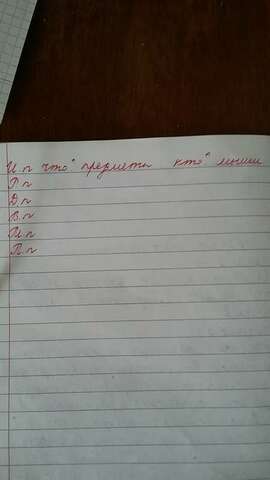 И.п что? предметы кто? мыши
Р.п
Д.п
В.п
Т.п
П.п